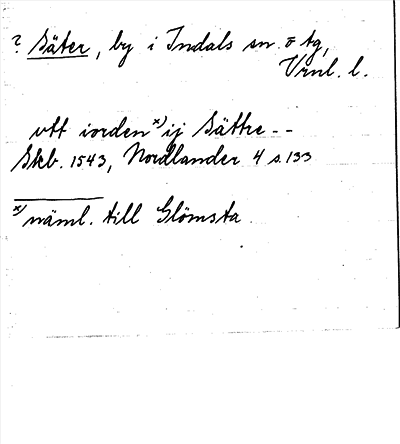 ? Säter, by i Indals sn. o tg,
Vrnl. l.
utt iorden x) ij Sättre - -
Skb. 1543, Nordlander 4 s. 133
x) näml. till Glömsta